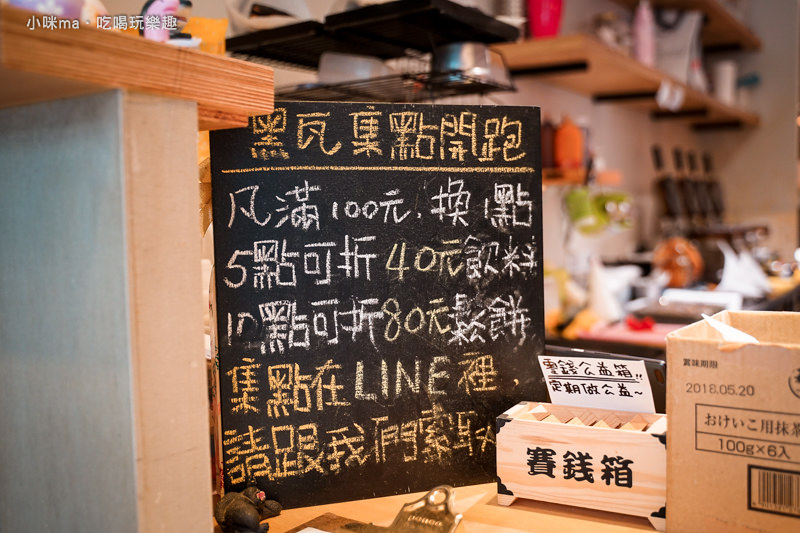 小咪ma、吃喝玩樂趣
黑瓦集點開跑
凡滿100元,換1點
5點可折40元飲料
10點可折80元鬆餅
集點在LINE裡,
請跟我們索取
零錢公益箱!!
定期做公益~
賽銭箱
賞味期限
2018.05.20
おけいこ用抹茶
100g×6入